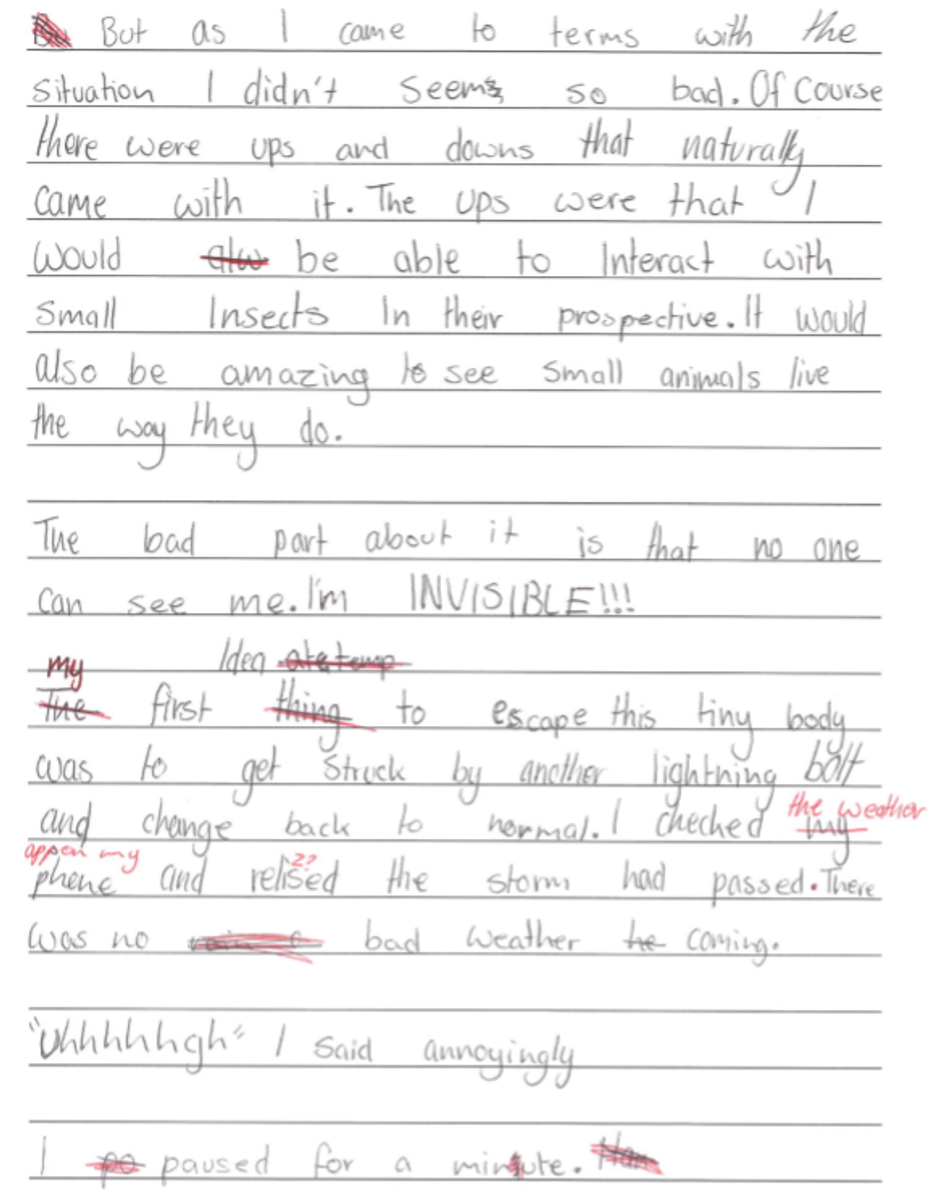 But as I came to terms with the
situation I didn't seem so bad. Of Course
there were ups and downs that naturally
came with it. The ups were that I
would be able to Interact with
small Insects In their prospective. It would
also be amazing to see small animals live
the way they do.
The bad part about it is that no one
can see me. I'm INVISIBLE!!!
my Idea
The first thing to escape this tiny body
was to get struck by another lightning bolt
and change back to normal. I checked my the weather
app on my
phone and relised z? the storm had passed. There
was no bad weather coming.
"Uhhhhhgh" I said annoyingly
I po paused for a minute.